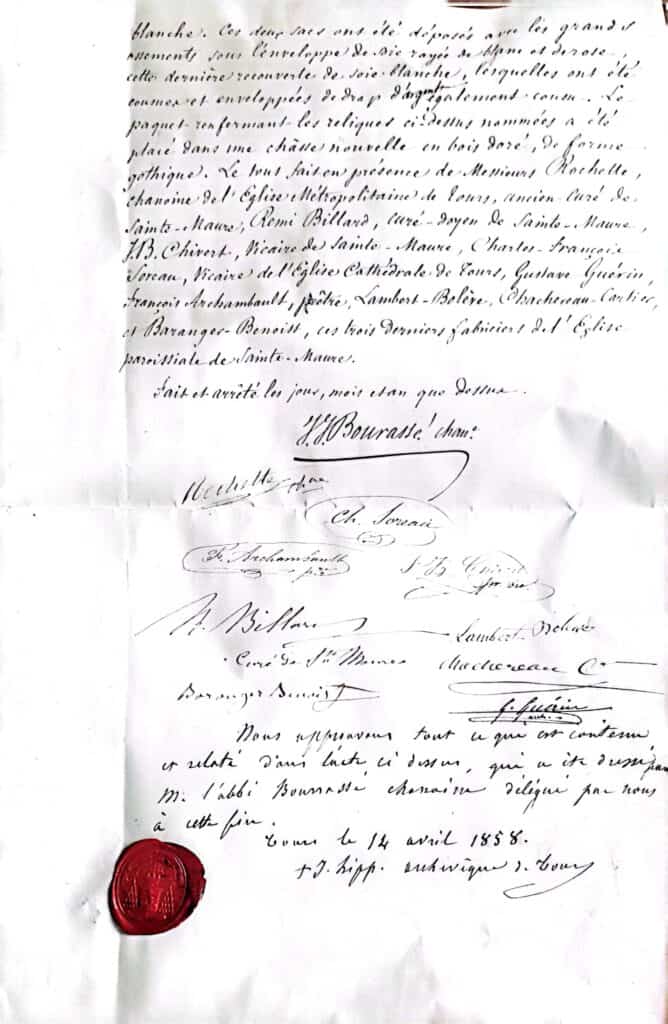 blanche. Ces deux sacs ont été déposés avec les grands
ossements sous l'enveloppe de soie rayée de blanc et de rose,
cette dernière recouverte de soie blanche, lesquelles ont été
cousues et enveloppées de drap d'argent également cousu. Le
paquet renfermant les reliques ci-dessus nommées a été
placé dans une châsse nouvelle en bois doré, de forme
gothique. Le tout fait en présence de Messieurs Rochette,
chanoine de l'Eglise Métropolitaine de Tours, ancien curé de
Sainte-Maure, Remi Billard, curé-doyen de Sainte-Maure,
J.B. Chivert, Vicaire de Sainte-Maure, Charles-François
Soreau, Vicaire de l'Eglise Cathédrale de Tours, Gustave Guérin,
François Archambault, prêtre, Lambert-Bolève, Chachereau-Cartier,
et Baranger-Benoist, ces trois derniers fabriciens de l'Eglise
paroissiale de Sainte-Maure.
Fait et arrêté les jour, mois et an que dessus.
J.J. Bourassé chan.e
Rochette chne
Ch. Soreau
F. Archambault
J. B. Chivert
R. Billard
Lambert
Curé de Ste Maure
Chachereau C
Baranger Benoist
G. Guérin
Nous approuvons tout ce que est contenu
et relaté dans l'acte ci dessus, qui a été dressé par
M. l'abbé Bourrassé chanoine délégué par nous
à cette fin.
Tours le 14 avril 1858.
+ J. hipp. archevêque de Tours